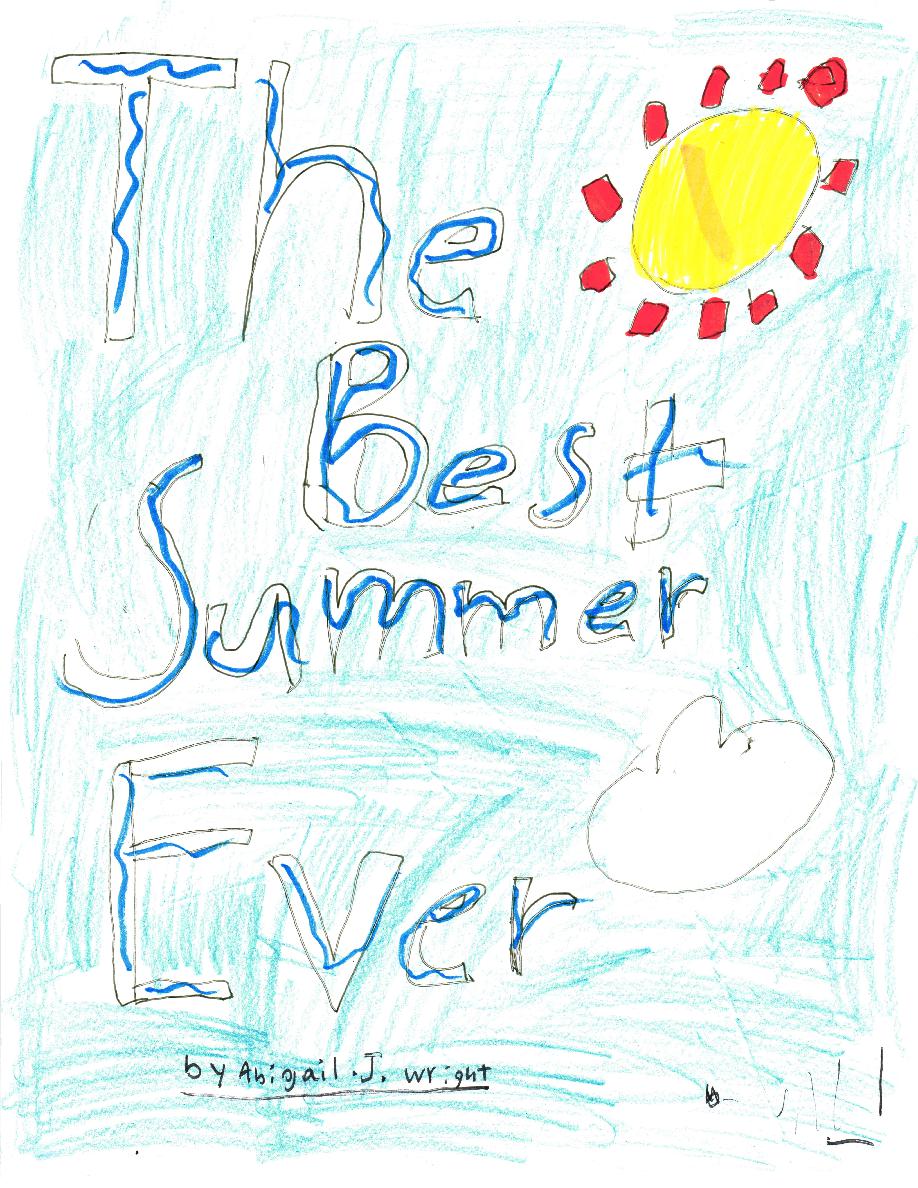 The
Best
Summer
Ever
by Abigail .J. wright